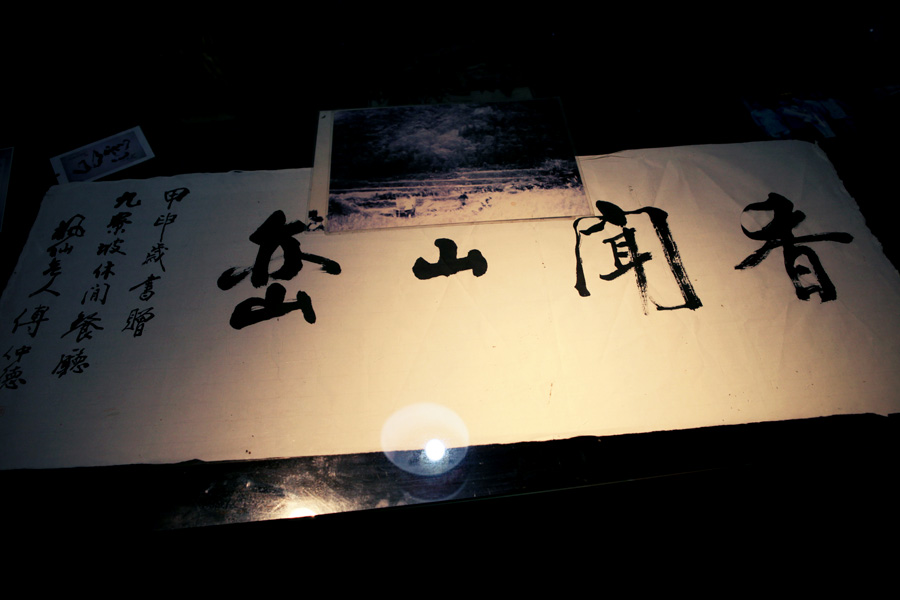 香聞山峦
甲申歲書贈
九寮坡休閒餐廳
楓仙老人傅仲德